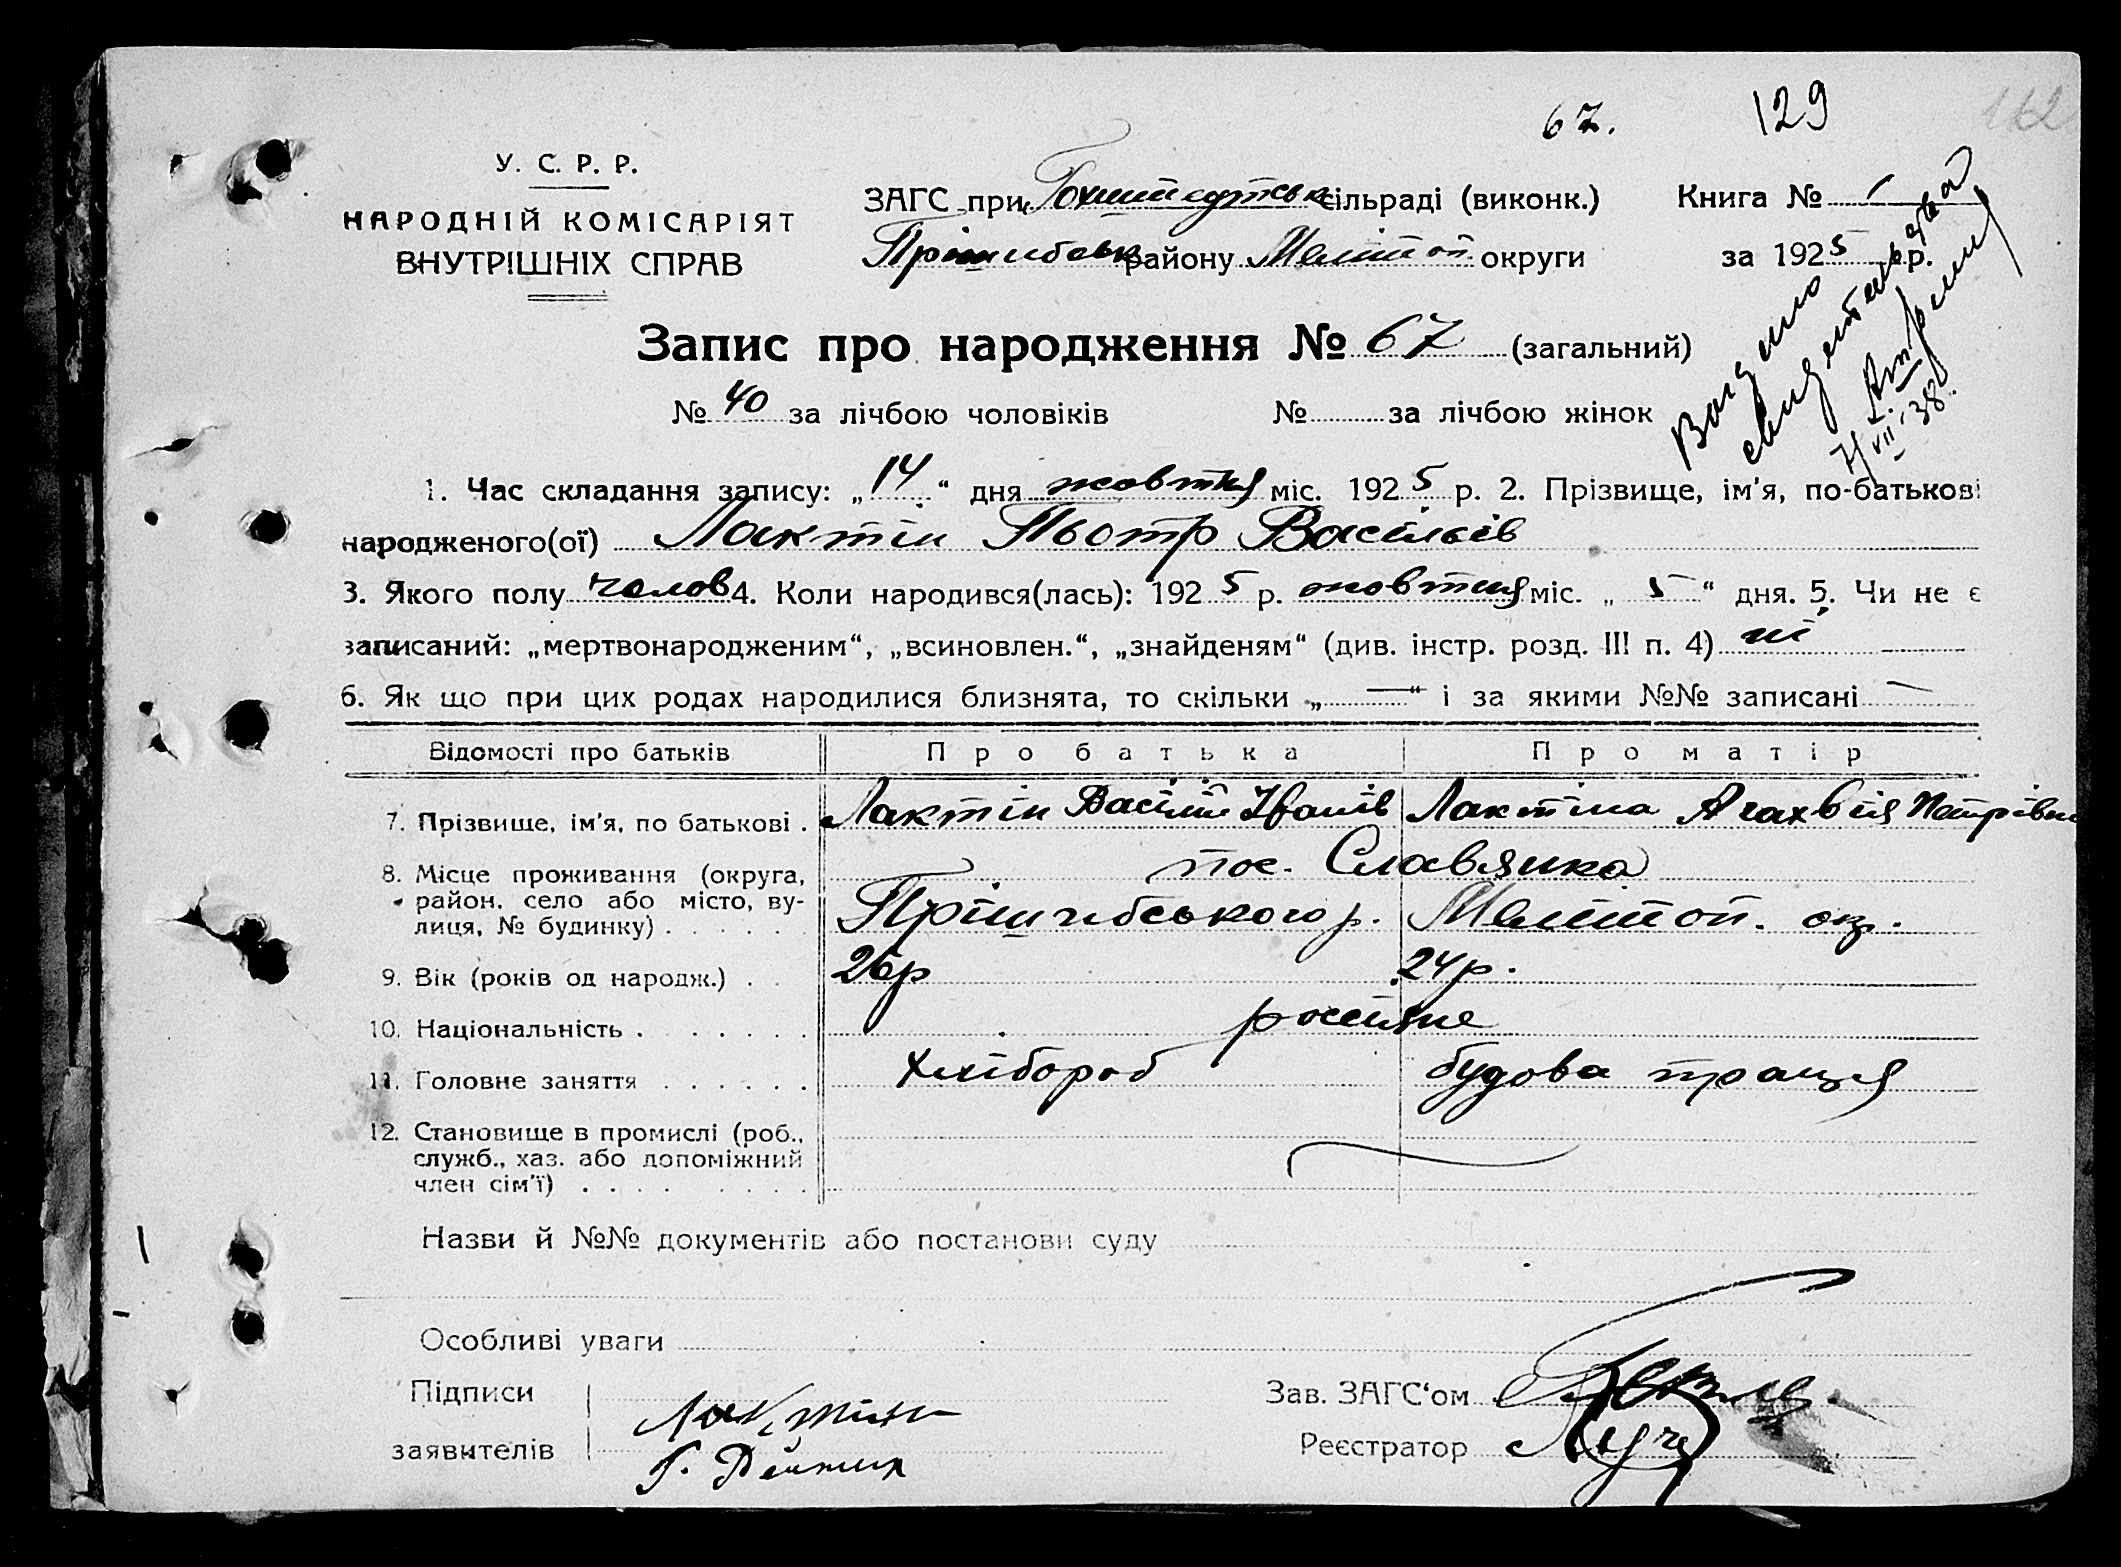 67. 129 162
У. С. Р. Р.
НАРОДНІЙ КОМІСАРІЯТ
ВНУТРІШНІХ СПРАВ
ЗАГС при Гохштедтськ сільраді (виконк.) Книга № 1
Прішибськ району Мелітоп. округи за 1925 р.
Запис про народження № 67 (загальний)
№ 40 за лічбою чоловіків № за лічбою жінок
Выдано
свидетельство
7/VII 38.
1. Час складання запису: „14“ дня жовтня міс. 1925 р. 2. Прізвище, ім'я, по-батькові
народженого(ої) Лактін Пьотр Васільів
3. Якого полу чолов 4. Коли народився(лась): 1925 р. жовтня міс. „5“ дня. 5. Чи не є
записаний: „мертвонародженим“, „всиновлен.“, „знайденям“ (див. інстр. розд. III п. 4) ні
6. Як що при цих родах народилися близнята, то скільки „—“ і за якими №№ записані —
Відомості про батьків Про батька Про матір
7. Прізвище, ім'я, по батькові . Лактін Васілій Іванів Лактіна Агахвія Петрівна
8. Місце проживання (округа, пос. Славянка
район, село або місто, ву-
лиця, № будинку) . . . . . . Прішибського р. Мелітоп. ок.
9. Вік (років од народж.) . . 26р 24р.
10. Національність . . . . . . . росіяне
11. Головне заняття . . . . . . Хлібороб будова праця
12. Становище в промислі (роб.,
служб., хаз. або допоміжний
член сім'ї) . . . . . . . .
Назви й №№ документів або постанови суду
Особливі уваги
Підписи Лактін Зав. ЗАГС'ом
заявителів Реєстратор